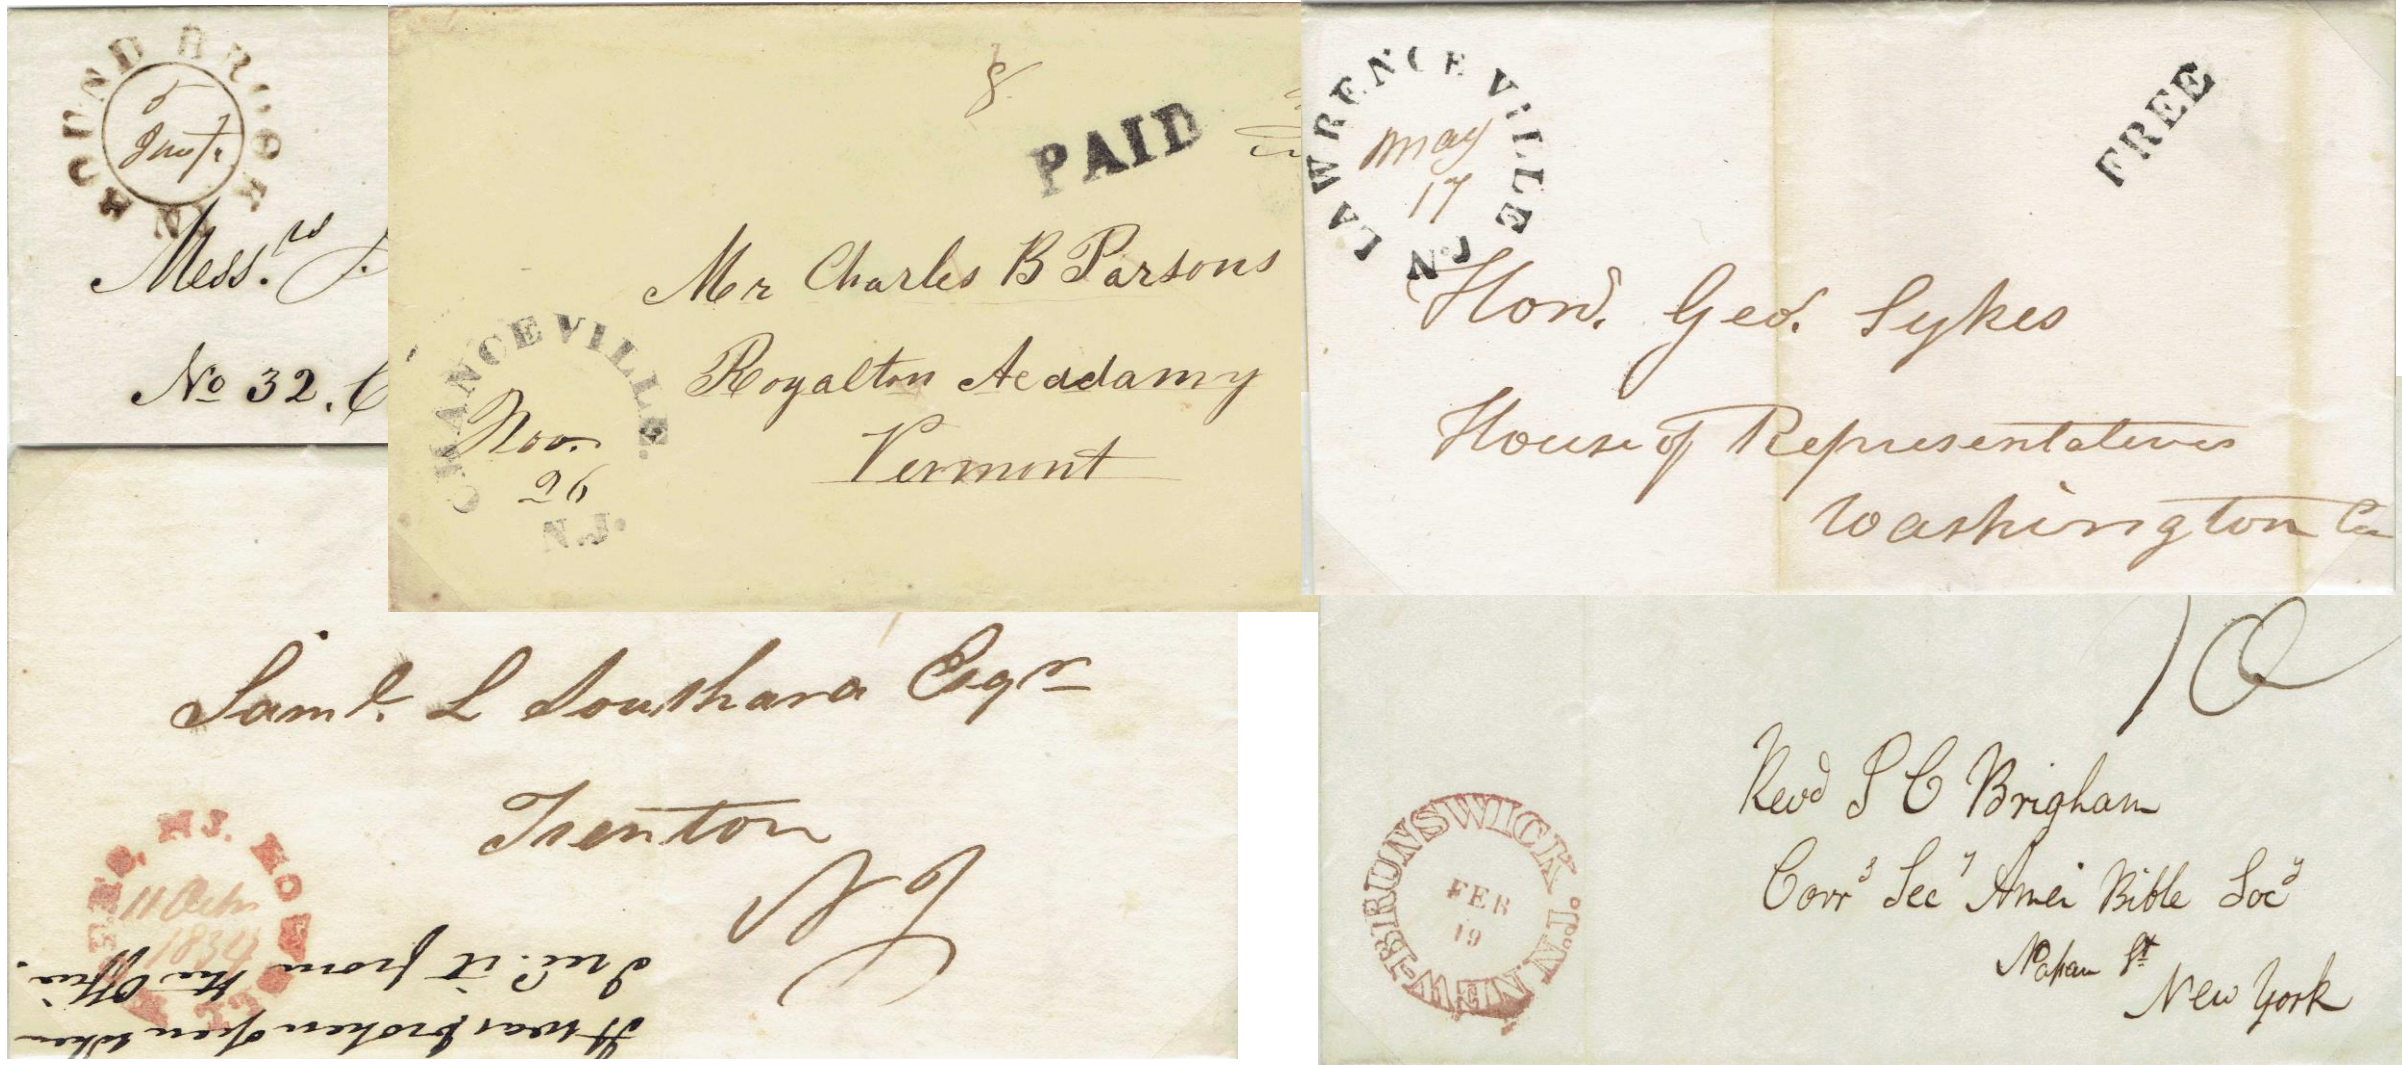 BOUND BROOK NJ
5
Mess.rs J.
No 32. C
8
PAID
Mr Charles B Parsons
Royalton Acadamy
Vermont
CHANCEVILLE.
Nov.
26
N.J.
LAWRENCEVILLE
NJ
May
17
FREE
Hon. Geo. Sykes
House of Representatives
Washington
Saml. L Southard Esqr
Trenton
NJ
NJ.
11
1834
It was broken open when
I rec. it from the office.
10
Revd S C Brigham
Corrg Secy Amer Bible Socy
Nassau St
New York
NEW-BRUNSWICK N.J.
FEB
19